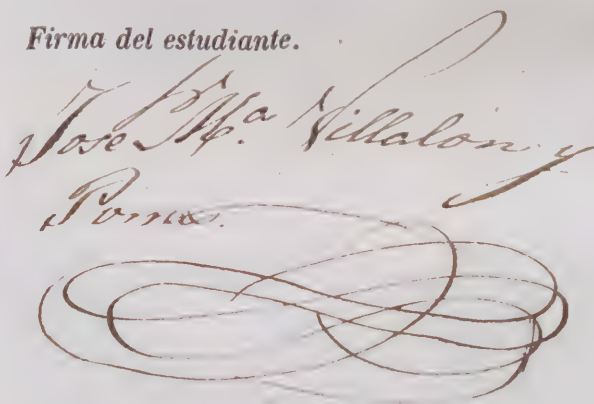 Firma del estudiante.
Jose M.ª Villalón y
Pomo.